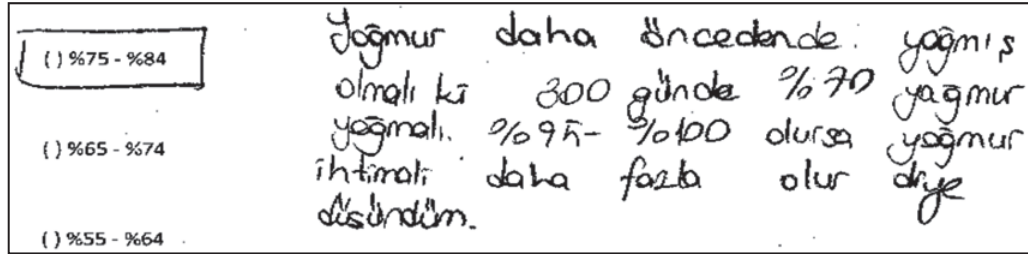 ( ) %75 - %84
( ) %65 - %74
( ) %55 - %64
Yağmur daha öncedende yağmış
olmalı ki 300 günde %70 yağmur
yağmalı. %95- %100 olursa yağmur
ihtimali daha fazla olur diye
düşündüm.